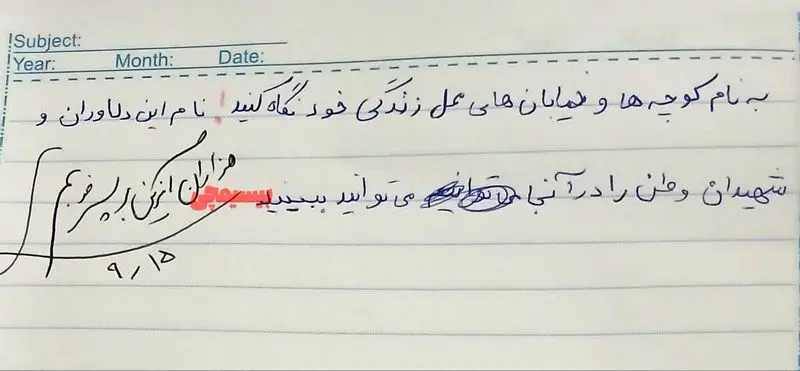 Subject:
Year: Month: Date:
به نام کوچه ها و خیابان های محل زندگی خود نگاه کنید! نام این دلاوران و
شهیدان وطن را در آنجا می توانید ببینید
بیسیمچی
هزاران آفرین بر پسر خوبم
۹/۱۵